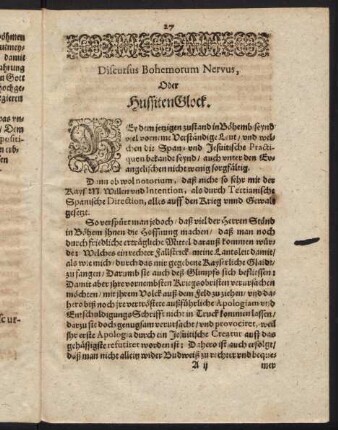 27
Discursus Bohemorum Nervus,
Oder
HussitenGlock.
BEy dem jetzigen zustand in Böhemb seynd
viel vorneme Verständige Leut, vnd wel-
chen die Span- vnd Jesuitische Practi-
quen bekandt seynd / auch vnter den Ev-
angelischen nicht wenig sorgfältig.
Dann ob wol notorium, daß nicht so sehr mit der
Kays. M. Willen vnd Intention, als durch Tertianische
Spanische Direction, alles auff den Krieg vnnd Gewalt
gesetzt.
So verspürt man jedoch / daß viel der Herren Ständ
in Böhm jhnen die Hoffnung machen / daß man noch
durch friedliche erträgliche Mittel darauß kommen wür-
de: Welches ein rechter Fallstrick meine Landsleut damit /
als wie mich / durch das mir gegebene Kayserliche Glaidt
zu fangen / Darumb sie auch deß Glimpfs sich beflissen:
Damit aber jhre vornembsten Kriegsobristen verursachen
möchten / mit jhrem Volck auß dem Feld zu ziehen / vnd da-
hero biß noch jre vertröstere außführliche Apologiam vnd
Entschuldigungs Schrifft nicht in Truck kommen lassen /
darzu sie doch genugsam verursacht / vnd provociret, weil
jhr erste Apologia durch ein Jesuitische Creatur auff das
gehässigste refutiret worden ist: Dahero ist auch erfolgt /
daß man nicht allein wider Budweiß zu rechter vnd beque-
A ij
mer